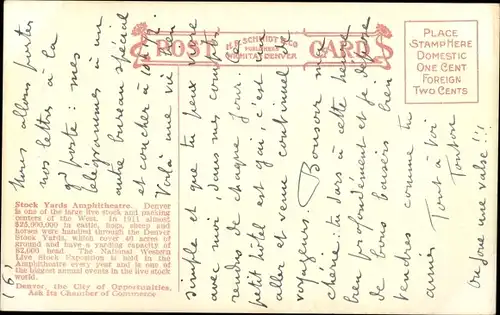 POST CARD
H.H. SCHMIDT & CO
PUBLISHERS
WICHITA, DENVER
PLACE
STAMP HERE
DOMESTIC
ONE CENT
FOREIGN
TWO CENTS
Nous allons porter
nos lettres à la
gde poste : mes
télégrammes à un
autre bureau spécial
et coucher à
Voilà une vie bien
simple et que tu peux vivre
avec moi, dans mes comptes
rendus de chaque jour. Le
petit hôtel est gai, c'est un
aller et venue continuel de
voyageurs. Bonsoir ma
chérie : tu dors à cette heure
bien profondément et je dépose
de bons baisers bien
tendres comme tu
aimes
Tout à toi
Tonton
On joue une valse !
(6)
Stock Yards Amphitheatre. Denver
is one of the large live stock and packing
centers of the West. In 1911 almost
$25,000,000 in cattle, hogs, sheep and
horses were handled through the Denver
Stock Yards, which cover 40 acres of
ground and have a yarding capacity of
82,000 head. The National Western
Live Stock Exposition is held in the
Amphitheatre every year and is one of
the biggest annual events in the live stock
world.
Denver, the City of Opportunities,
Ask Its Chamber of Commerce